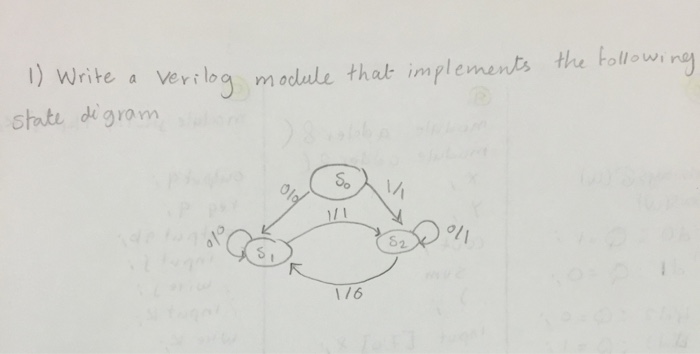 1) Write a verilog module that implements the following
state digram
S0
0/0
1/1
1/1
0/0
S1
S2
0/1
1/0